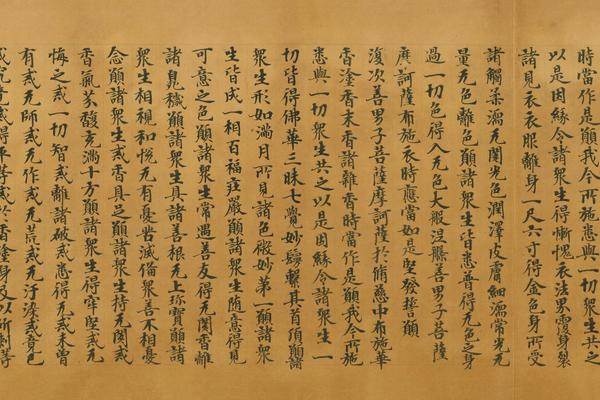 時當作是願我今所施悉與一切衆生共之
以是因緣令諸衆生得慚愧衣法界覆身裂
諸見衣衣服離身一尺六寸得金色身所受
諸觸柔濡无閡光色潤澤皮膚細濡常光无
量无色離色願諸衆生皆悉普得无色之身
過一切色得入无色大般涅槃善男子菩薩
摩訶薩布施衣時應當如是堅發誓願
復次善男子菩薩摩訶薩於脩慈中布施華
香塗香末香諸雜香時當作是願我今所施
悉與一切衆生共之以是因緣令諸衆生一
切皆得佛華三昧七覺妙鬘繫其首頂願諸
衆生形如滿月所見諸色微妙第一願諸衆
生皆成一相百福莊嚴願諸衆生隨意得見
可意之色願諸衆生常遇善友得无閡香離
諸臭穢願諸衆生具諸善根无上珍寶願諸
衆生相視和悅无有憂苦咸備衆善不相憂
念願諸衆生戒香具足願諸衆生持无閡戒
香氣芬馥充滿十方願諸衆生得牢堅戒无
悔之戒一切智戒離諸破戒悉得无戒未曾
有戒无師戒无作戒无荒戒无汙染戒竟已
戒究竟戒得平等戒以香塗身及以斫刺等